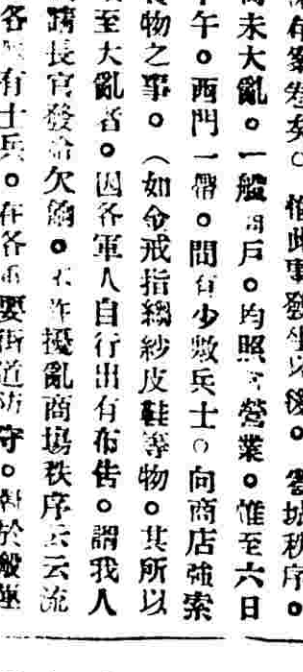 惟此事發生以後。省城秩序。
尚未大亂。一般商戶。均照常營業。惟至六日
下午。西門一帶。間有少數兵士。向商店強索
貨物之事。（如金戒指縐紗皮鞋等物。其所以
至大亂者。因各軍人自行出有布告。謂我人
請長官發給欠餉。不許擾亂商場秩序云云流
各 有士兵。在各重要街道防守。對於般運